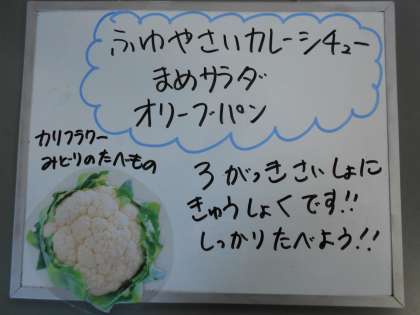 ふゆやさいカレーシチュー
まめサラダ
オリーブパン
カリフラワー
みどりのたべもの
3がっきさいしょに
きゅうしょくです!!
しっかりたべよう!!